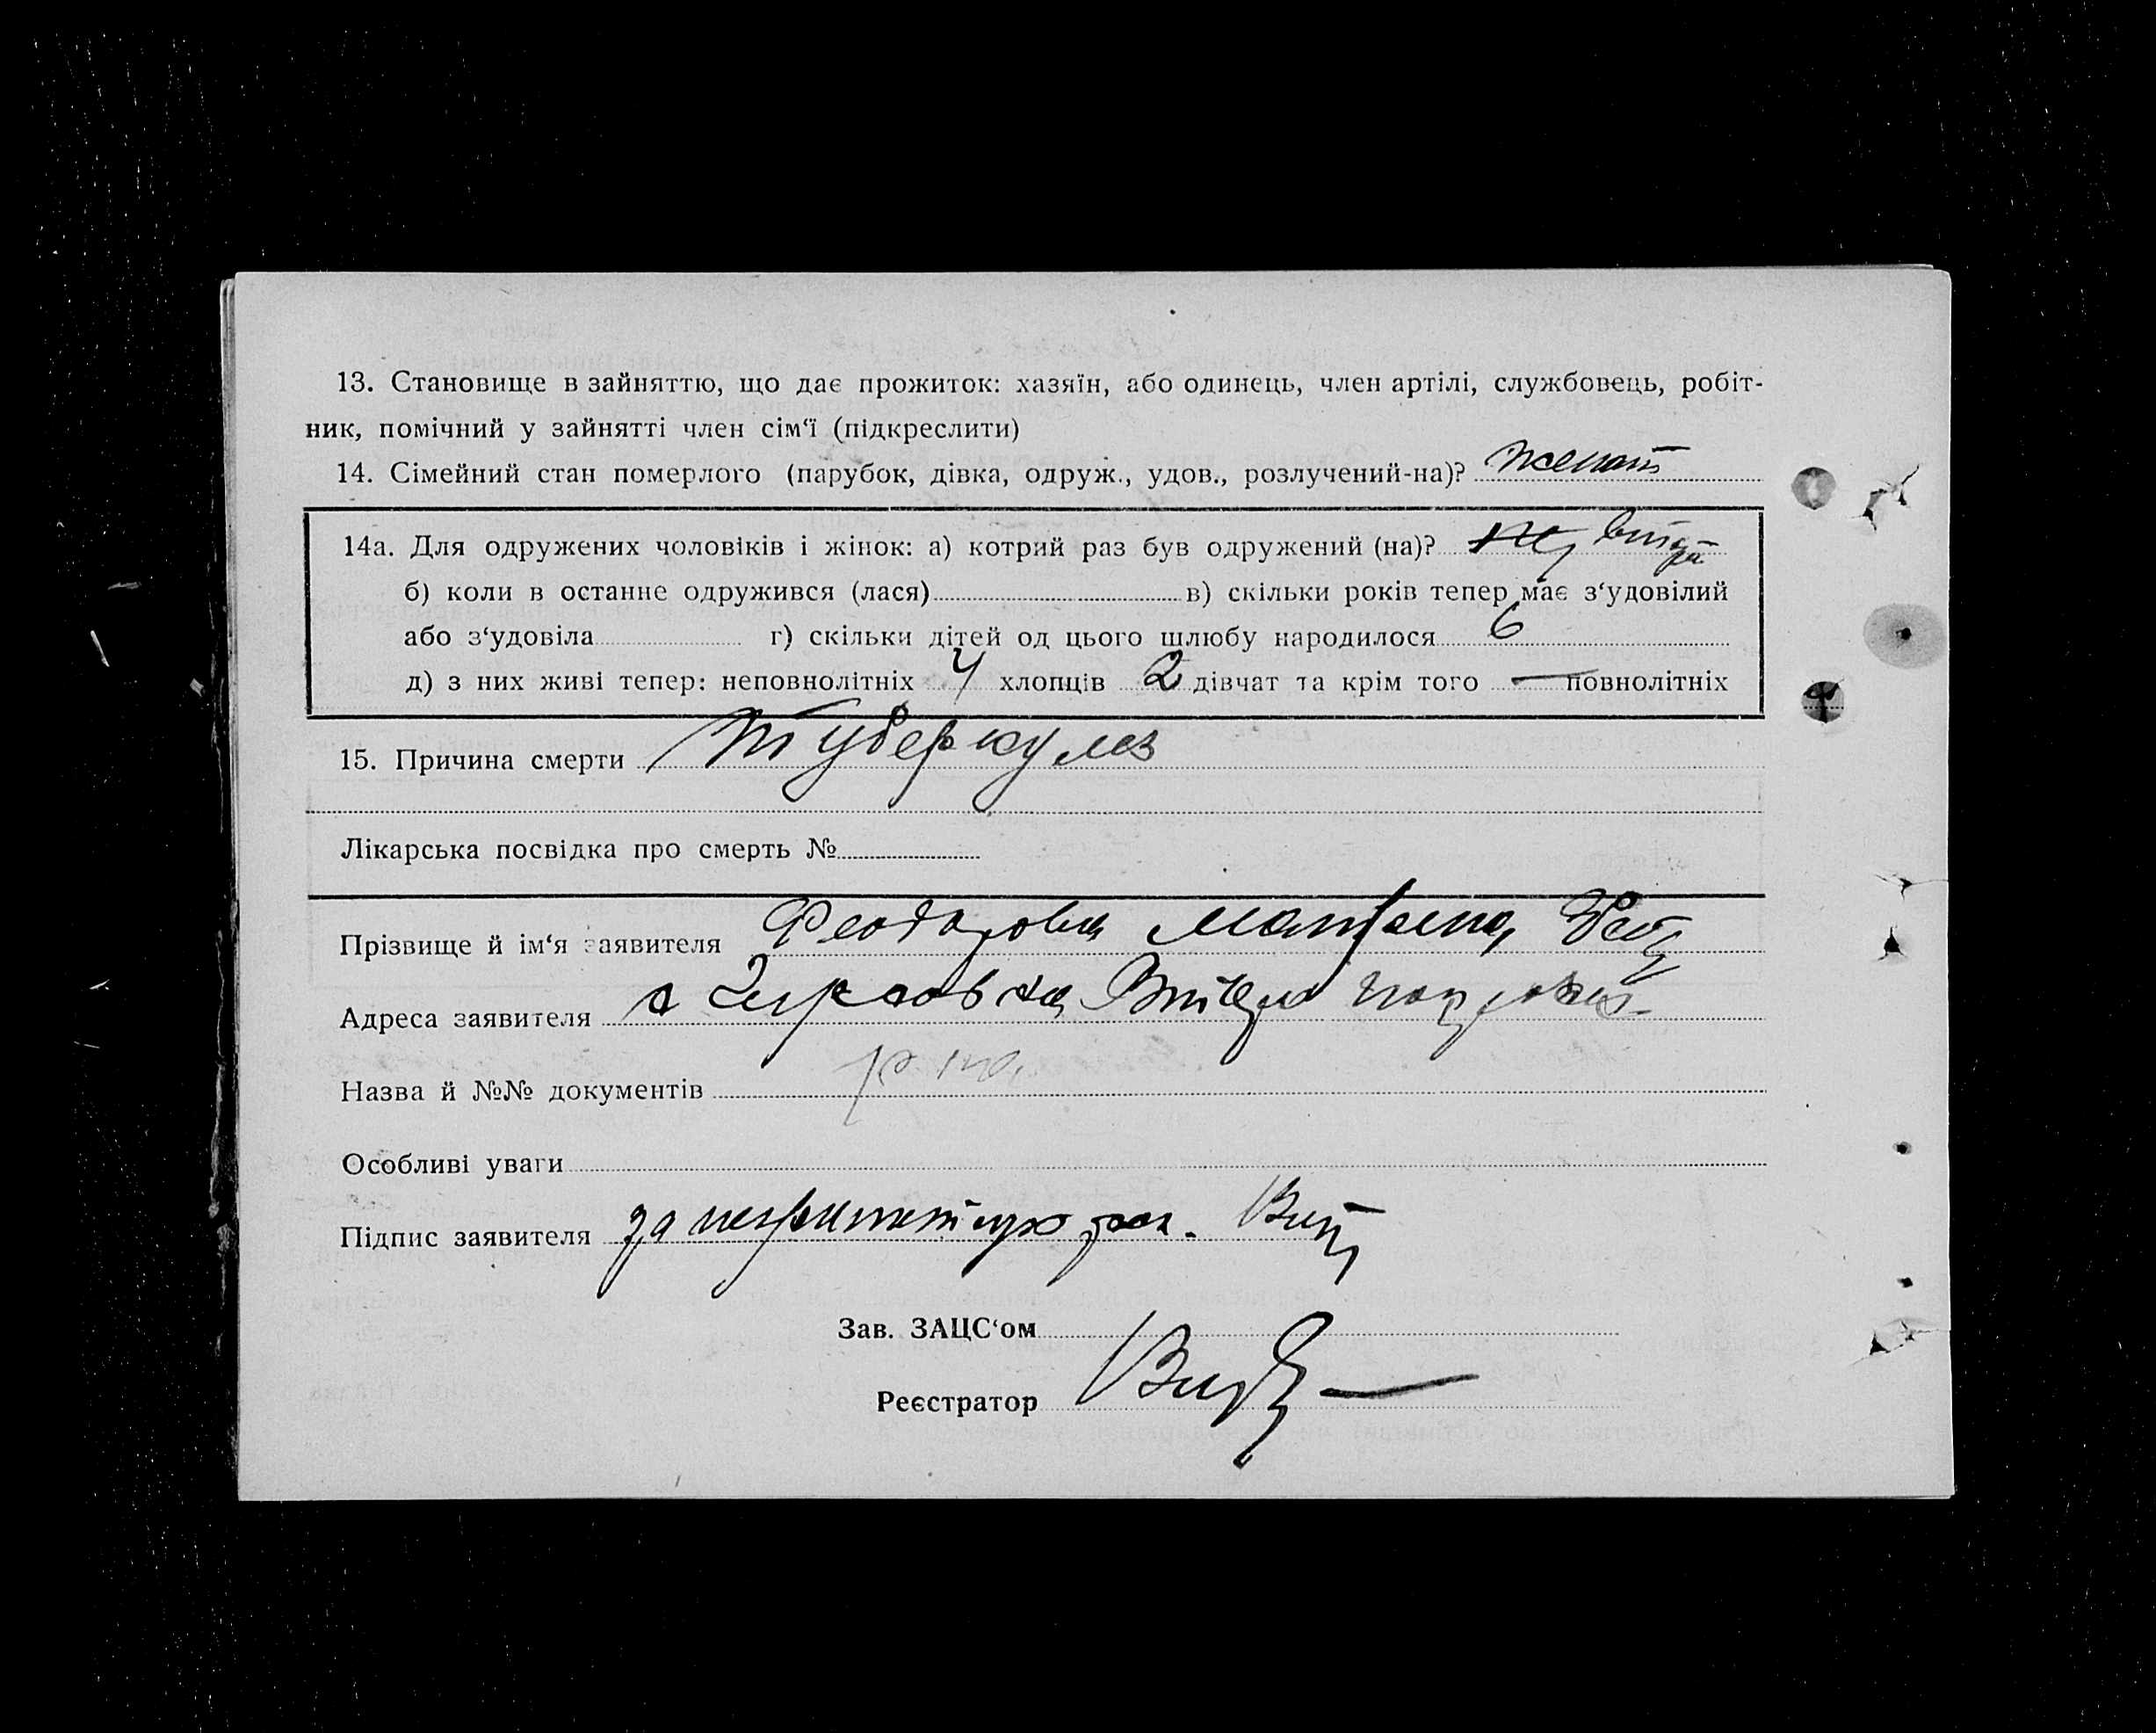 13. Становище в зайняттю, що дає прожиток: хазяїн, або одинець, член артілі, службовець, робіт-
ник, помічний у зайнятті член сім‘ї (підкреслити)
14. Сімейний стан померлого (парубок, дівка, одруж., удов., розлучений-на)? женат
14а. Для одружених чоловіків і жінок: а) котрий раз був одружений (на)?
б) коли в останне одружився (лася) в) скільки років тепер має з‘удовілий
або з‘удовіла г) скільки дітей од цього шлюбу народилося 6
д) з них живі тепер: неповнолітніх 4 хлопців 2 дівчат та крім того — повнолітніх
15. Причина смерти Туберкулез
Лікарська посвідка про смерть №
Прізвище й ім‘я заявителя Феодорова
Адреса заявителя с
Назва й №№ документів
Особливі уваги
Підпис заявителя за неграмотную
Зав. ЗАЦС‘ом
Реєстратор